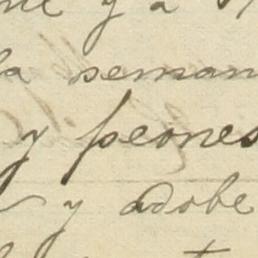 y a
la seman
y peones
y adobe